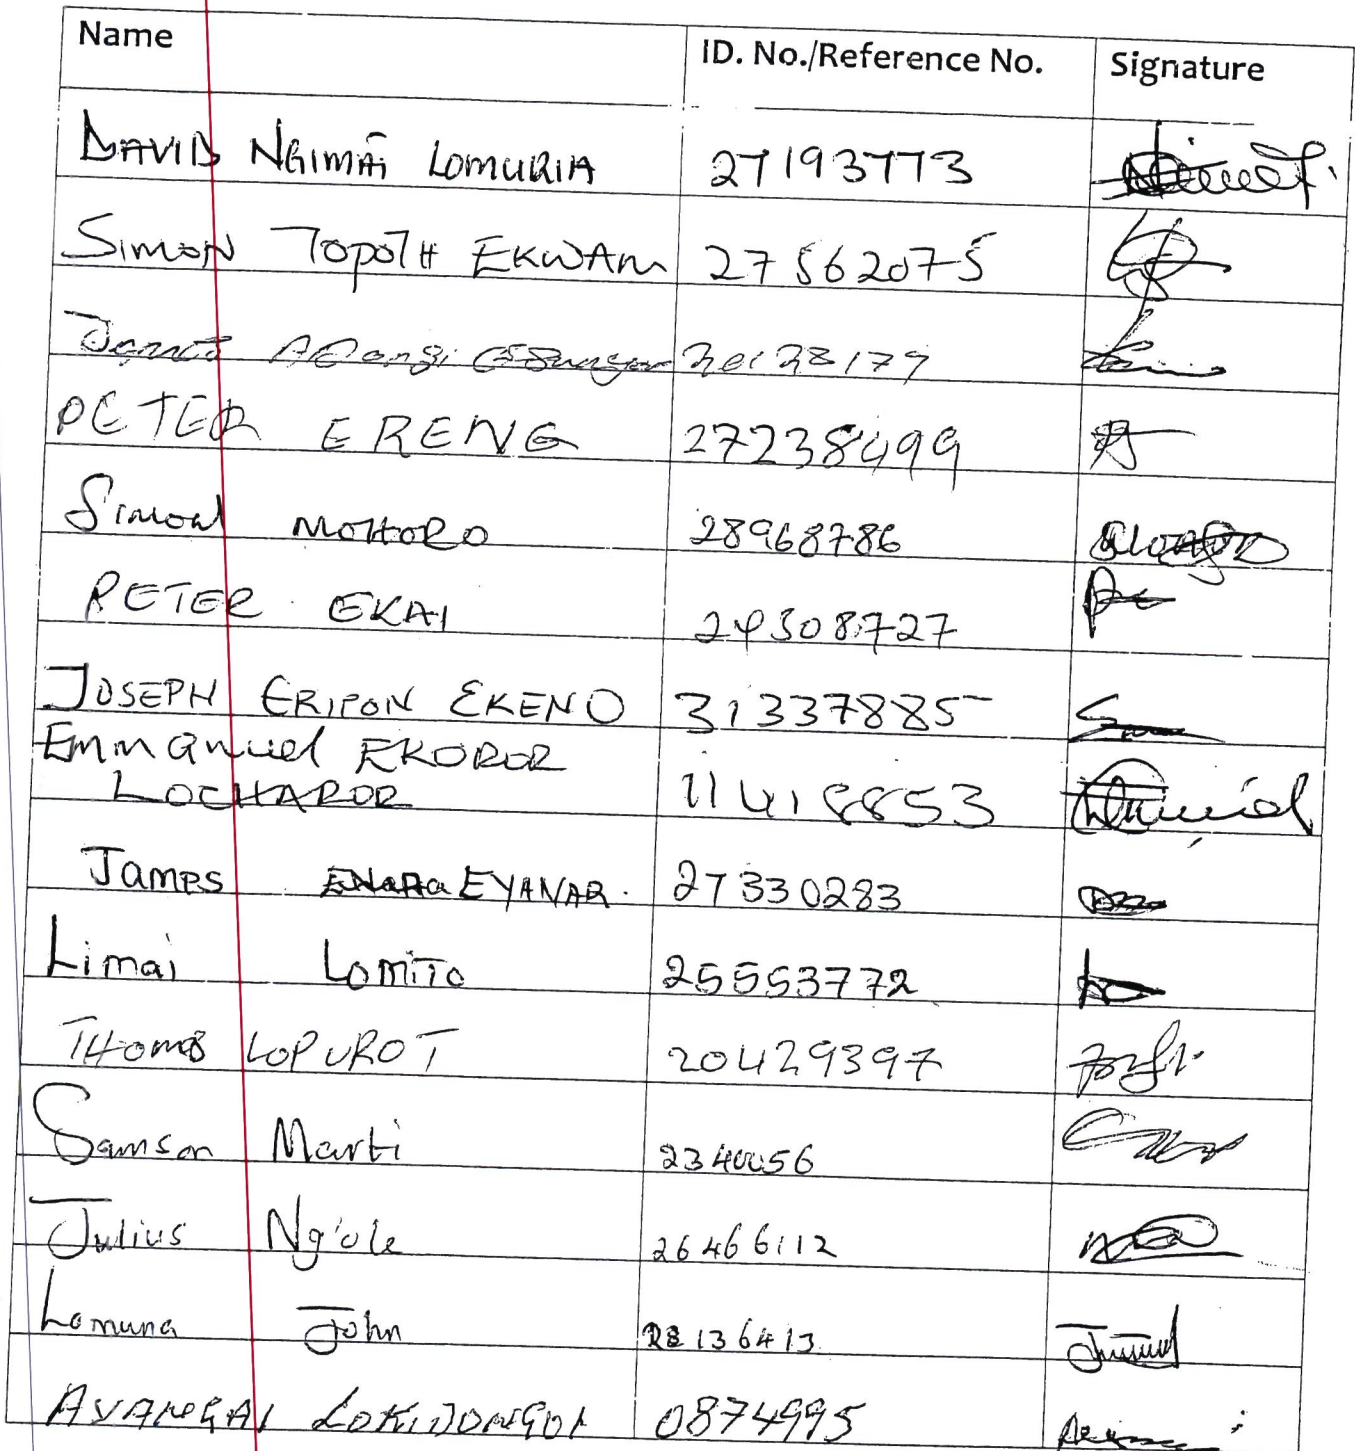 Name ID. No./Reference No. Signature
DAVID NGIMAI LOMURIA 27193773
SIMON TOPOTH EKWAM 27562075
James
PETER ERENG 27238499
Simon MOTTORO 28968786
PETER EKAI 24308727
JOSEPH ERIPON EKENO 31337885
Emmanuel EKOROR
LOCHAROR 11418853
James EYANAR. 27330283
Limai LOMITO 25553772
THOMAS LOPUROT 20429397
Samson Marti
Julius Ng'ole 26466112
Lomuna John 28136413
AYANGAI LOKIDONGOI 0874995